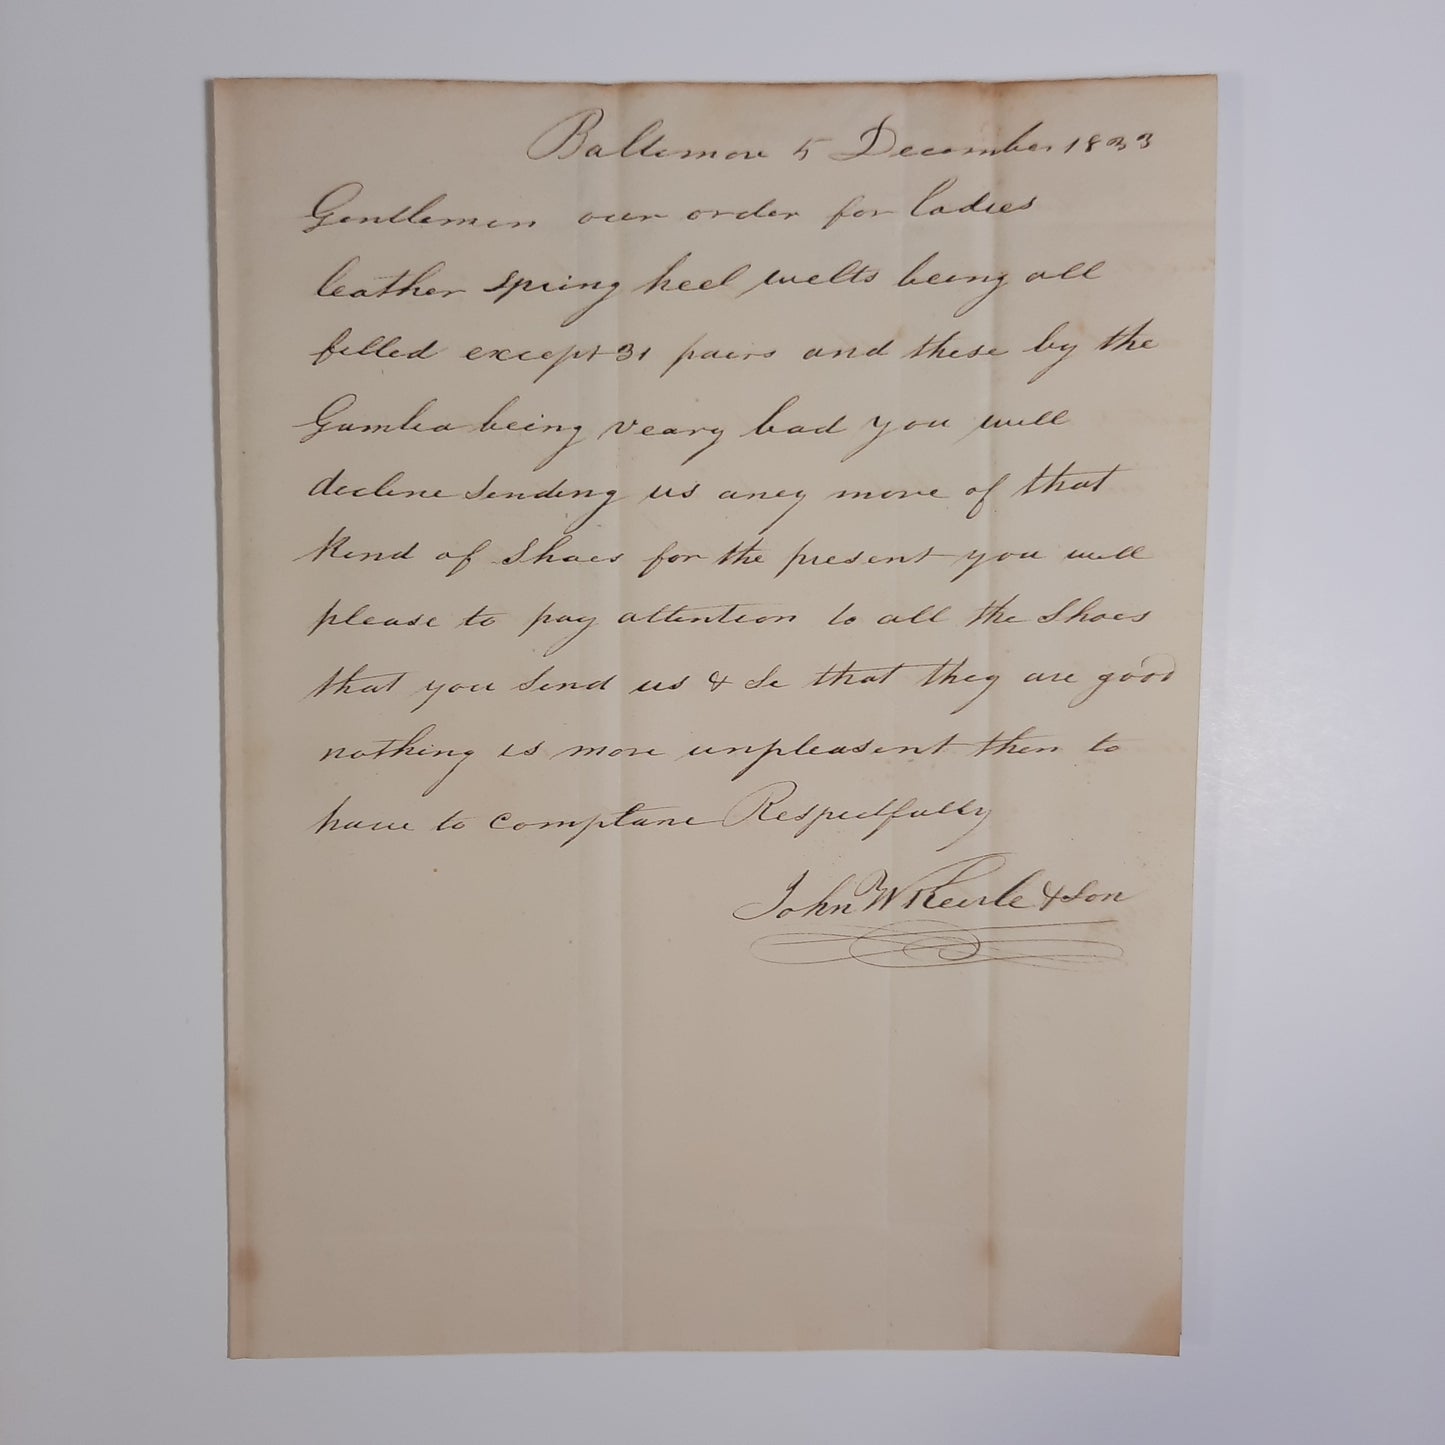 Baltimore 5 December 1833
Gentlemen our order for Ladies
leather spring heel welts being all
filled except 31 pairs and these by the
Gambia being veary bad you will
decline sending us aney more of that
kind of Shoes for the present you will
please to pay attention to all the Shoes
that you send us & se that they are good
nothing is more unpleasent then to
have to complane Respectfully
John W Keirle & Son